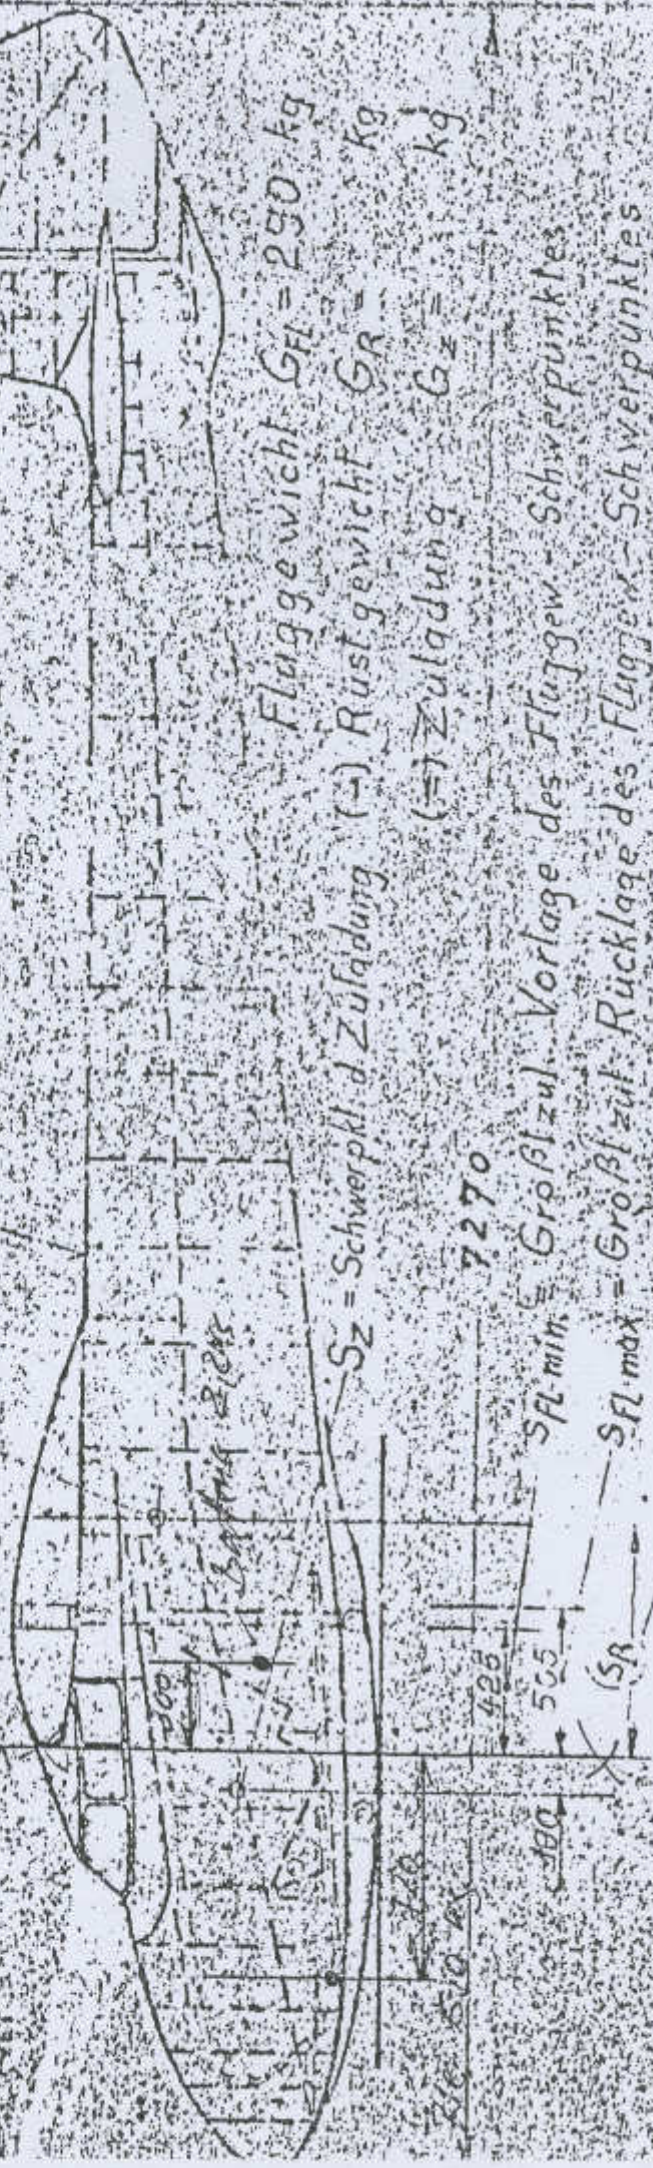 Fluggewicht GFL = 290 kg
(-) Rüstgewicht GR = kg
(=) Zuladung Gz = kg
Sz = Schwerpkt d Zuladung
7270
SFL min. = Größtzul. Vorlage des Fluggew.-Schwerpunktes
SFL max = Größtzul. Rücklage des Fluggew.-Schwerpunktes
300
425
505
(SR